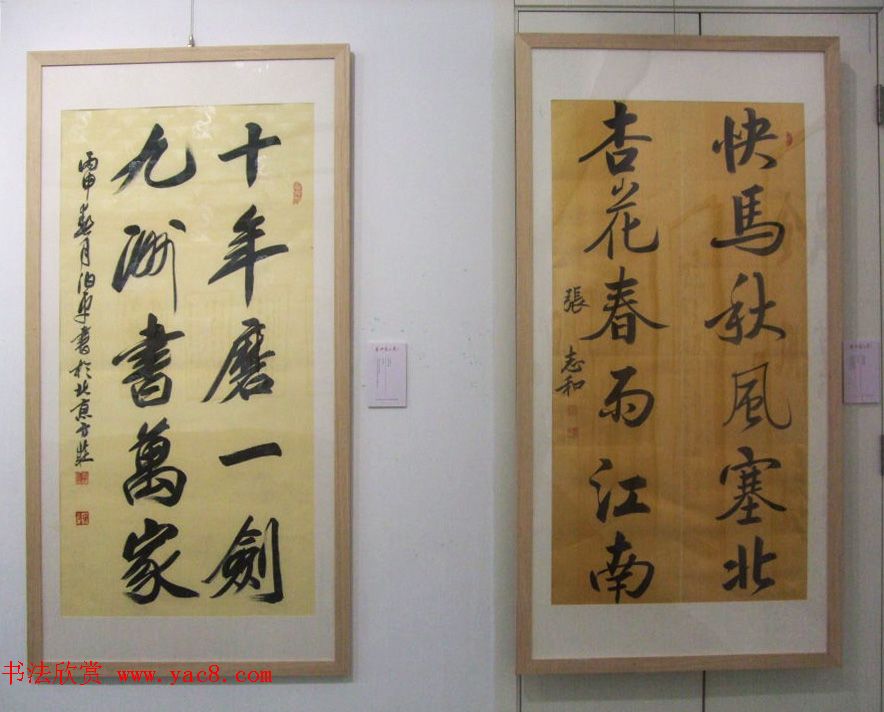 十年磨一劍
九洲書萬家
丙申春月伯平書於北京方莊
快馬秋風塞北
杏花春雨江南
張志和
书法欣赏 www.yac8.com